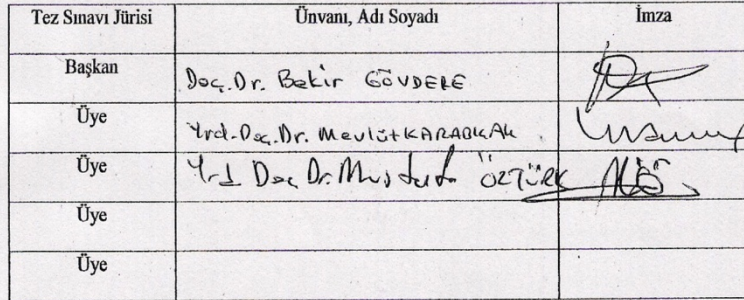 Tez Sınavı Jürisi Ünvanı, Adı Soyadı İmza
Başkan Doç. Dr. Bekir GÖVDERE
Üye Yrd. Doç. Dr. Mevlüt KARABIÇAK
Üye Yrd Doç Dr. Mustafa ÖZTÜRK
Üye
Üye